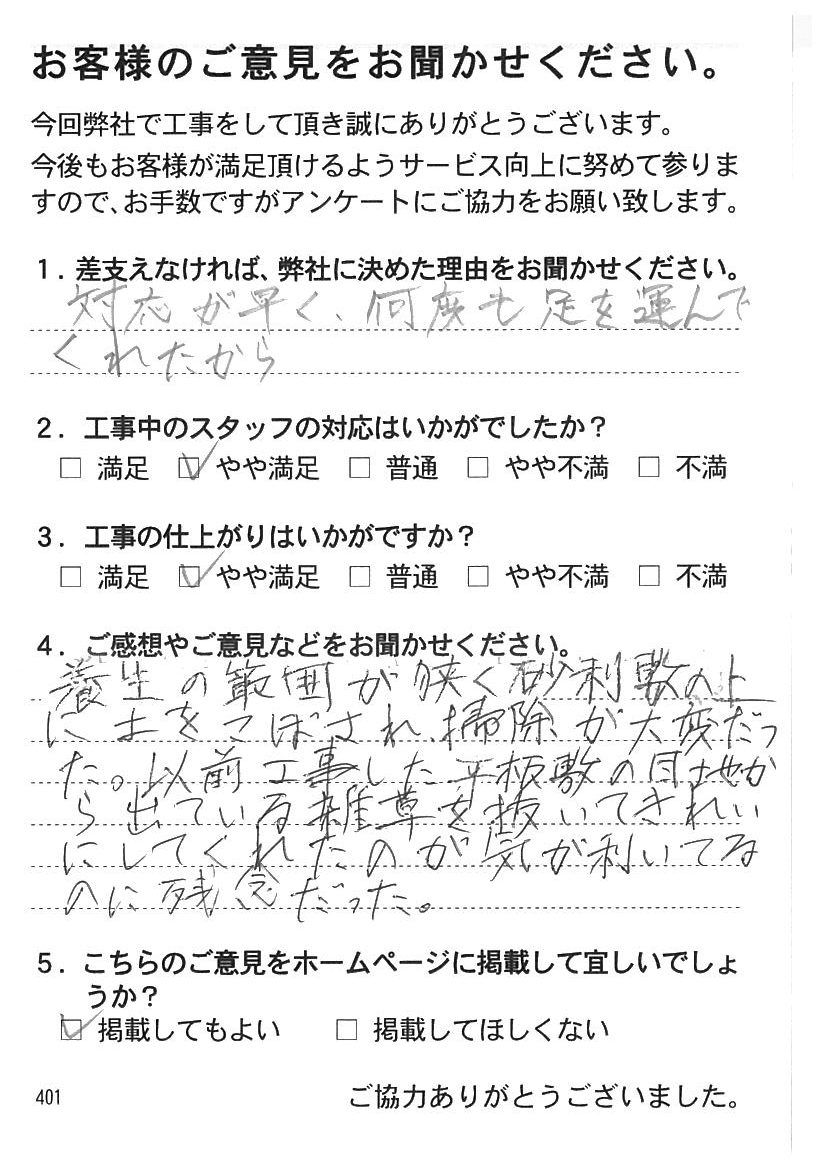 お客様のご意見をお聞かせください。
今回弊社で工事をして頂き誠にありがとうございます。
今後もお客様が満足頂けるようサービス向上に努めて参りま
すので、お手数ですがアンケートにご協力をお願い致します。
1. 差支えなければ、弊社に決めた理由をお聞かせください。
対応が早く、何度も足を運んで
くれたから
2. 工事中のスタッフの対応はいかがでしたか?
□ 満足 ☑ やや満足 □ 普通 □ やや不満 □ 不満
3. 工事の仕上がりはいかがですか?
□ 満足 ☑ やや満足 □ 普通 □ やや不満 □ 不満
4. ご感想やご意見などをお聞かせください。
養生の範囲が狭く砂利敷の上
に土をこぼされ、掃除が大変だっ
た。以前工事した平板敷の目地か
ら出ている雑草を抜いてきれい
にしてくれたのが気が利いてる
のに残念だった。
5. こちらのご意見をホームページに掲載して宜しいでしょ
うか?
☑ 掲載してもよい □ 掲載してほしくない
401 ご協力ありがとうございました。